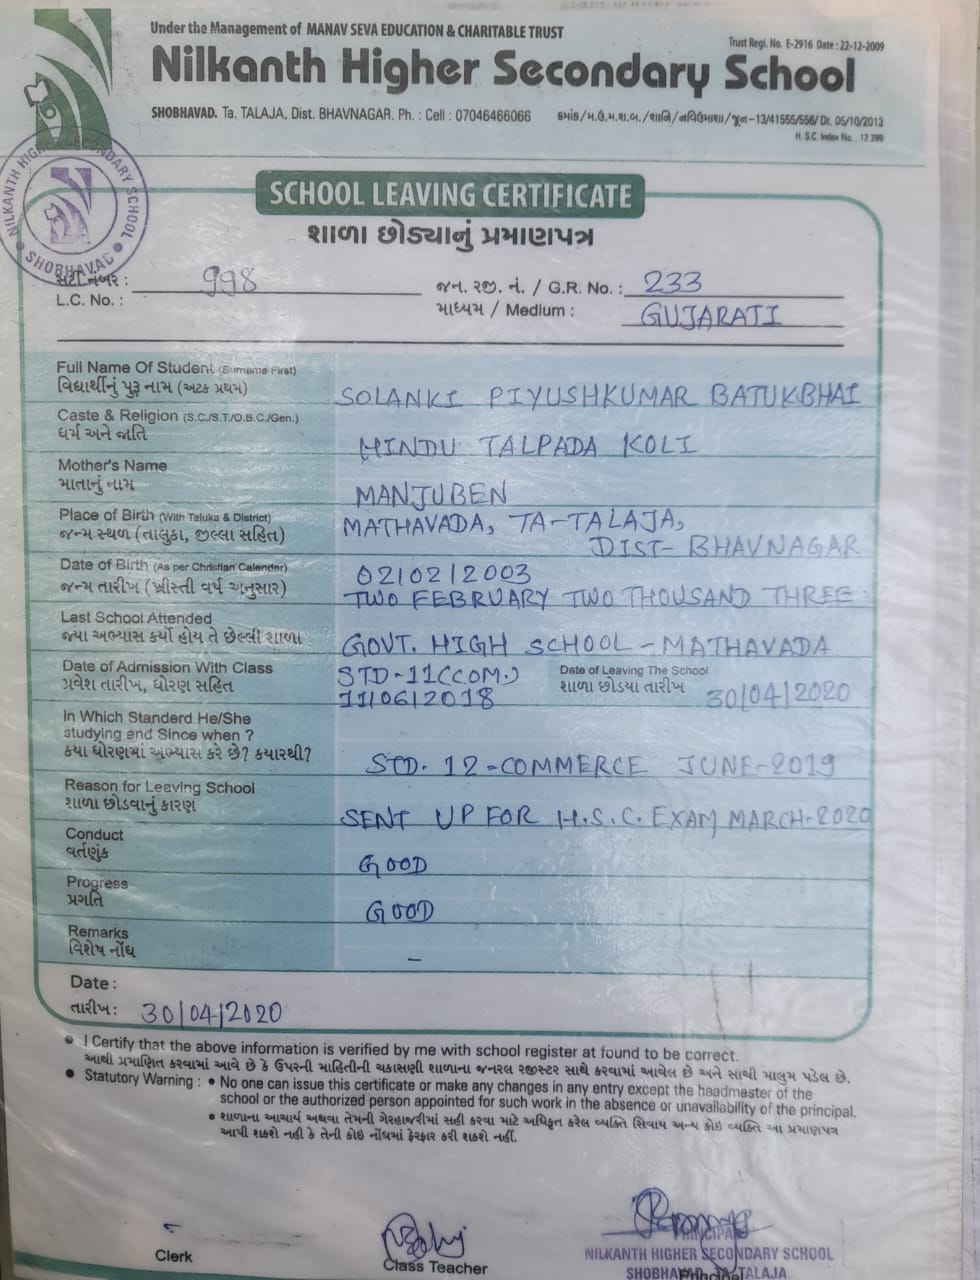 Under the Management of MANAV SEVA EDUCATION & CHARITABLE TRUST
Trust Regi. No. E-2916 Date : 22-12-2009
Nilkanth Higher Secondary School
SHOBHAVAD. Ta. TALAJA, Dist. BHAVNAGAR. Ph. : Cell : 07046466066
ક્રમાંક/મ.ઉ.મ.શ.બ./શાનિ/નવિઉમાશા/જૂન-13/41555/556/ Dt. 05/10/2013
H. S.C. Index No. : 12.299
NILKANTH HIGHER SECONDARY SCHOOL
SHOBHAVAD
SCHOOL LEAVING CERTIFICATE
શાળા છોડ્યાનું પ્રમાણપત્ર
સર્ટી નંબર :
L.C. No. : 998
જન. રજી. નં. / G.R. No. : 233
માધ્યમ / Medium : GUJARATI
Full Name Of Student (Surname First)
વિદ્યાર્થીનું પુરૂ નામ (અટક પ્રથમ)
SOLANKI PIYUSHKUMAR BATUKBHAI
Caste & Religion (S.C./S.T./O.B.C./Gen.)
ધર્મ અને જાતિ
HINDU TALPADA KOLI
Mother's Name
માતાનું નામ
MANJUBEN
Place of Birth (With Taluka & District)
જન્મ સ્થળ (તાલુકા, જીલ્લા સહિત)
MATHAVADA, TA-TALAJA,
DIST-BHAVNAGAR
Date of Birth (As per Christian Calender)
જન્મ તારીખ (ખ્રીસ્તી વર્ષ અનુસાર)
02/02/2003
TWO FEBRUARY TWO THOUSAND THREE
Last School Attended
જ્યા અભ્યાસ કર્યો હોય તે છેલ્લી શાળા
GOVT. HIGH SCHOOL - MATHAVADA
Date of Admission With Class
પ્રવેશ તારીખ, ધોરણ સહિત
STD-11(COM.)
11/06/2018
Date of Leaving The School
શાળા છોડયા તારીખ
30/04/2020
In Which Standerd He/She
studying and Since when ?
કયા ધોરણમાં અભ્યાસ કરે છે? કયારથી?
STD. 12-COMMERCE JUNE-2019
Reason for Leaving School
શાળા છોડવાનું કારણ
SENT UP FOR H.S.C. EXAM MARCH-2020
Conduct
વર્તણુંક
GOOD
Progress
પ્રગતિ
GOOD
Remarks
વિશેષ નોંધ
–
Date :
તારીખ : 30/04/2020
• I Certify that the above information is verified by me with school register at found to be correct.
આથી પ્રમાણિત કરવામાં આવે છે કે ઉપરની માહિતીની ચકાસણી શાળાના જનરલ રજીસ્ટર સાથે કરવામાં આવેલ છે અને સાચી માલુમ પડેલ છે.
• Statutory Warning : • No one can issue this certificate or make any changes in any entry except the headmaster of the
school or the authorized person appointed for such work in the absence or unavailability of the principal.
• શાળાના આચાર્ય અથવા તેમની ગેરહાજરીમાં સહી કરવા માટે અધિકૃત કરેલ વ્યક્તિ સિવાય અન્ય કોઇ વ્યક્તિ આ પ્રમાણપત્ર
આપી શકશે નહી કે તેની કોઇ નોંધમાં ફેરફાર કરી શકશે નહીં.
Clerk
Class Teacher
PRINCIPAL
NILKANTH HIGHER SECONDARY SCHOOL
SHOBHAVAD, TA. TALAJA
Principal